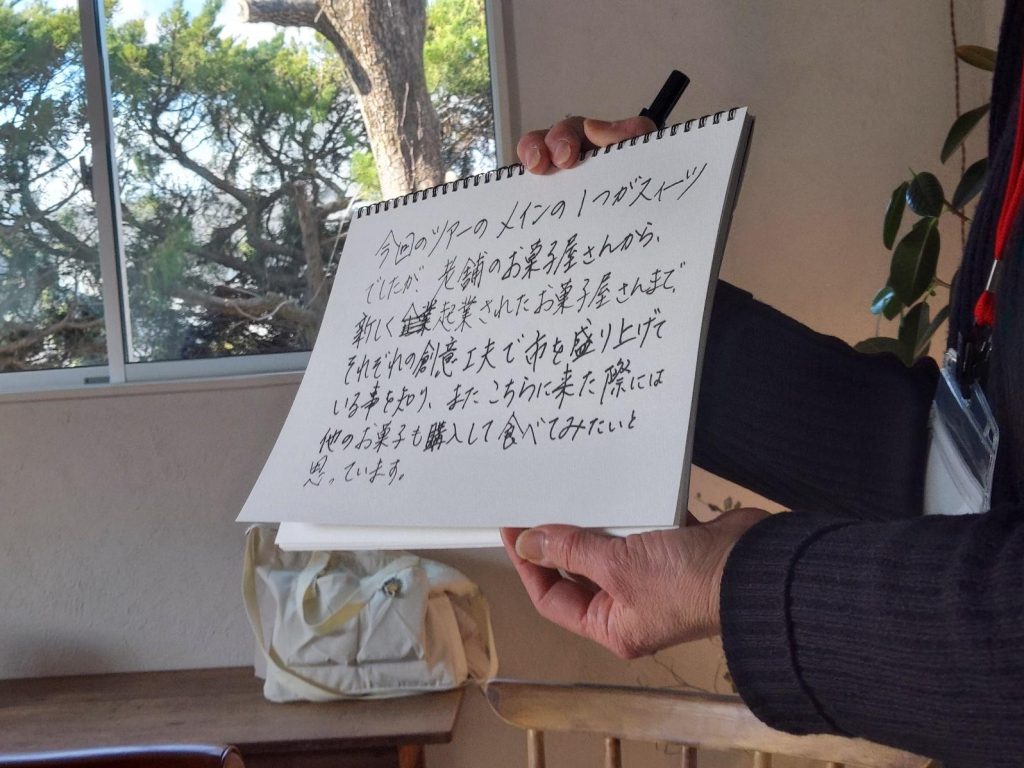 今回のツアーのメインの1つがスィーツ
でしたが、老舗のお菓子屋さんから、
新しく起業されたお菓子屋さんまで、
それぞれの創意工夫で市を盛り上げて
いる事を知り、またこちらに来た際には
他のお菓子も購入して食べてみたいと
思っています。